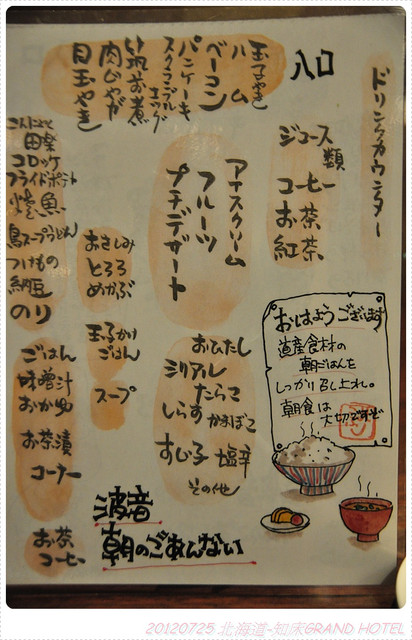 ドリンクカウンター
入口
ジュース類
コーヒー
お茶
紅茶
玉子やき
ハム
ベーコン
パンケーキ
スクランブルエッグ
筑前煮
肉じゃが
目玉やき
アイスクリーム
フルーツ
プチデザート
こんにゃく
田楽
コロッケ
フライドポテト
焼魚
鳥スープうどん
つけもの
納豆
のり
おさしみ
とろろ
めかぶ
玉子かけ
ごはん
スープ
ごはん
味噌汁
おかゆ
お茶漬
コーナー
お茶
コーヒー
おひたし
シリアル
たらこ
しらす かまぼこ
すじ子 塩辛
その他
おはようございます
道産食材の
朝ごはんを
しっかり召し上れ。
朝食は
大切ですぞ
波音
朝のごあんない
20120725 北海道-知床GRAND HOTEL